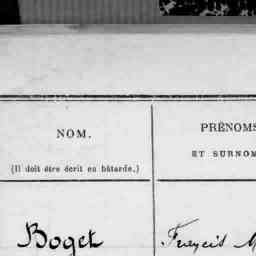 NOM.
PRÉNOMS
ET SURNOM
(Il doit être écrit en bâtarde.)
Boget